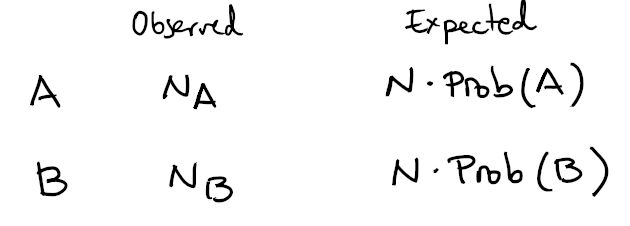 Observed Expected
A N_A N · Prob(A)
B N_B N · Prob(B)